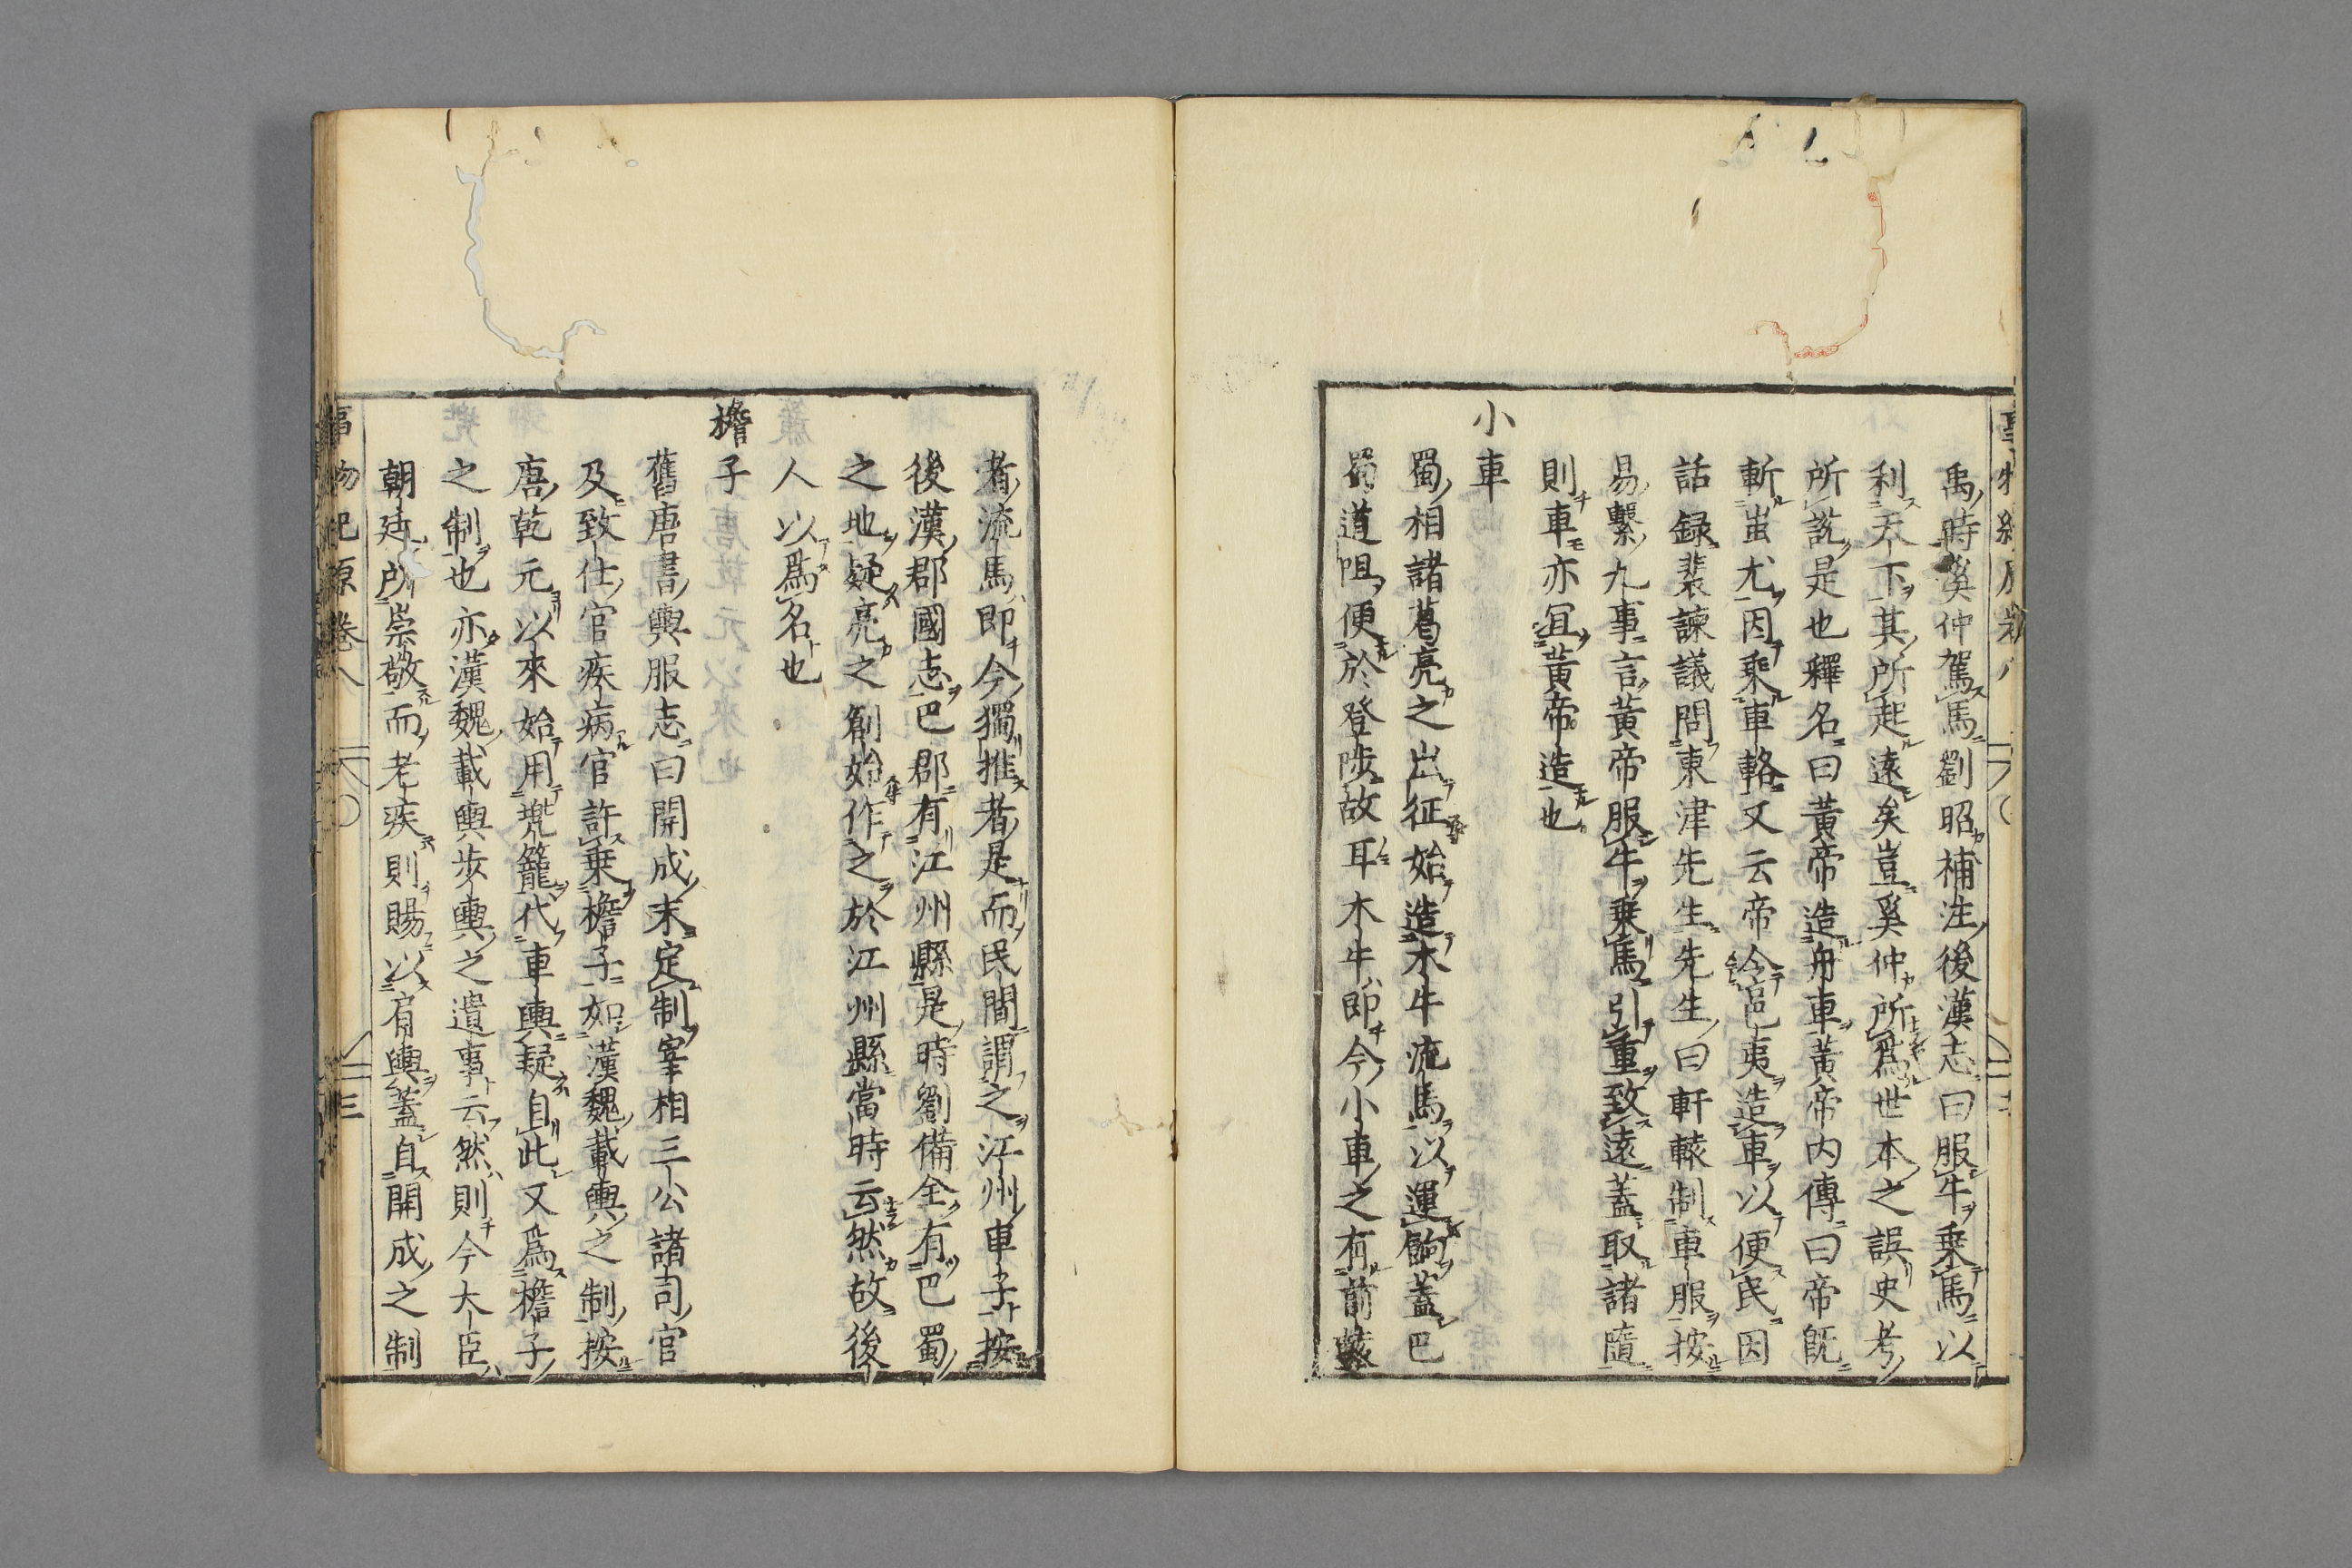 禹時奚仲駕馬劉昭補注後漢志曰服牛乗馬以
利天下其所起遠矣豈奚仲所爲世本之誤史考
所說是也釋名曰黃帝造舟車黃帝内傳曰帝旣
斬蚩尤因乗車輅又云帝令邑夷造車以便民因
話録裴諫議問東津先生先生曰軒轅制車服按
易繫九事言黃帝服牛乗馬引重致遠蓋取諸隨
則車亦冝黃帝造也
小車
蜀相諸葛亮之出征始造木牛流馬以運餉蓋巴
蜀道阻便於登陟故耳木牛即今小車之有前轅
者流馬即今獨推者是而民間謂之江州車子按
後漢郡國志巴郡有江州縣是時劉備全有巴蜀
之地疑亮之創始作之於江州縣當時云然故後
人以爲名也
檐子
舊唐書輿服志曰開成末定制宰相三公諸司官
及致仕官疾病官許乗檐子如漢魏載輿之制按
唐乾元以來始用兠籠代車輿疑自此又爲檐子
之制也亦漢魏載輿步輿之遺事云然則今大臣
朝廷所崇敬而老疾則賜以肩輿蓋自開成之制
事物紀原卷八
三